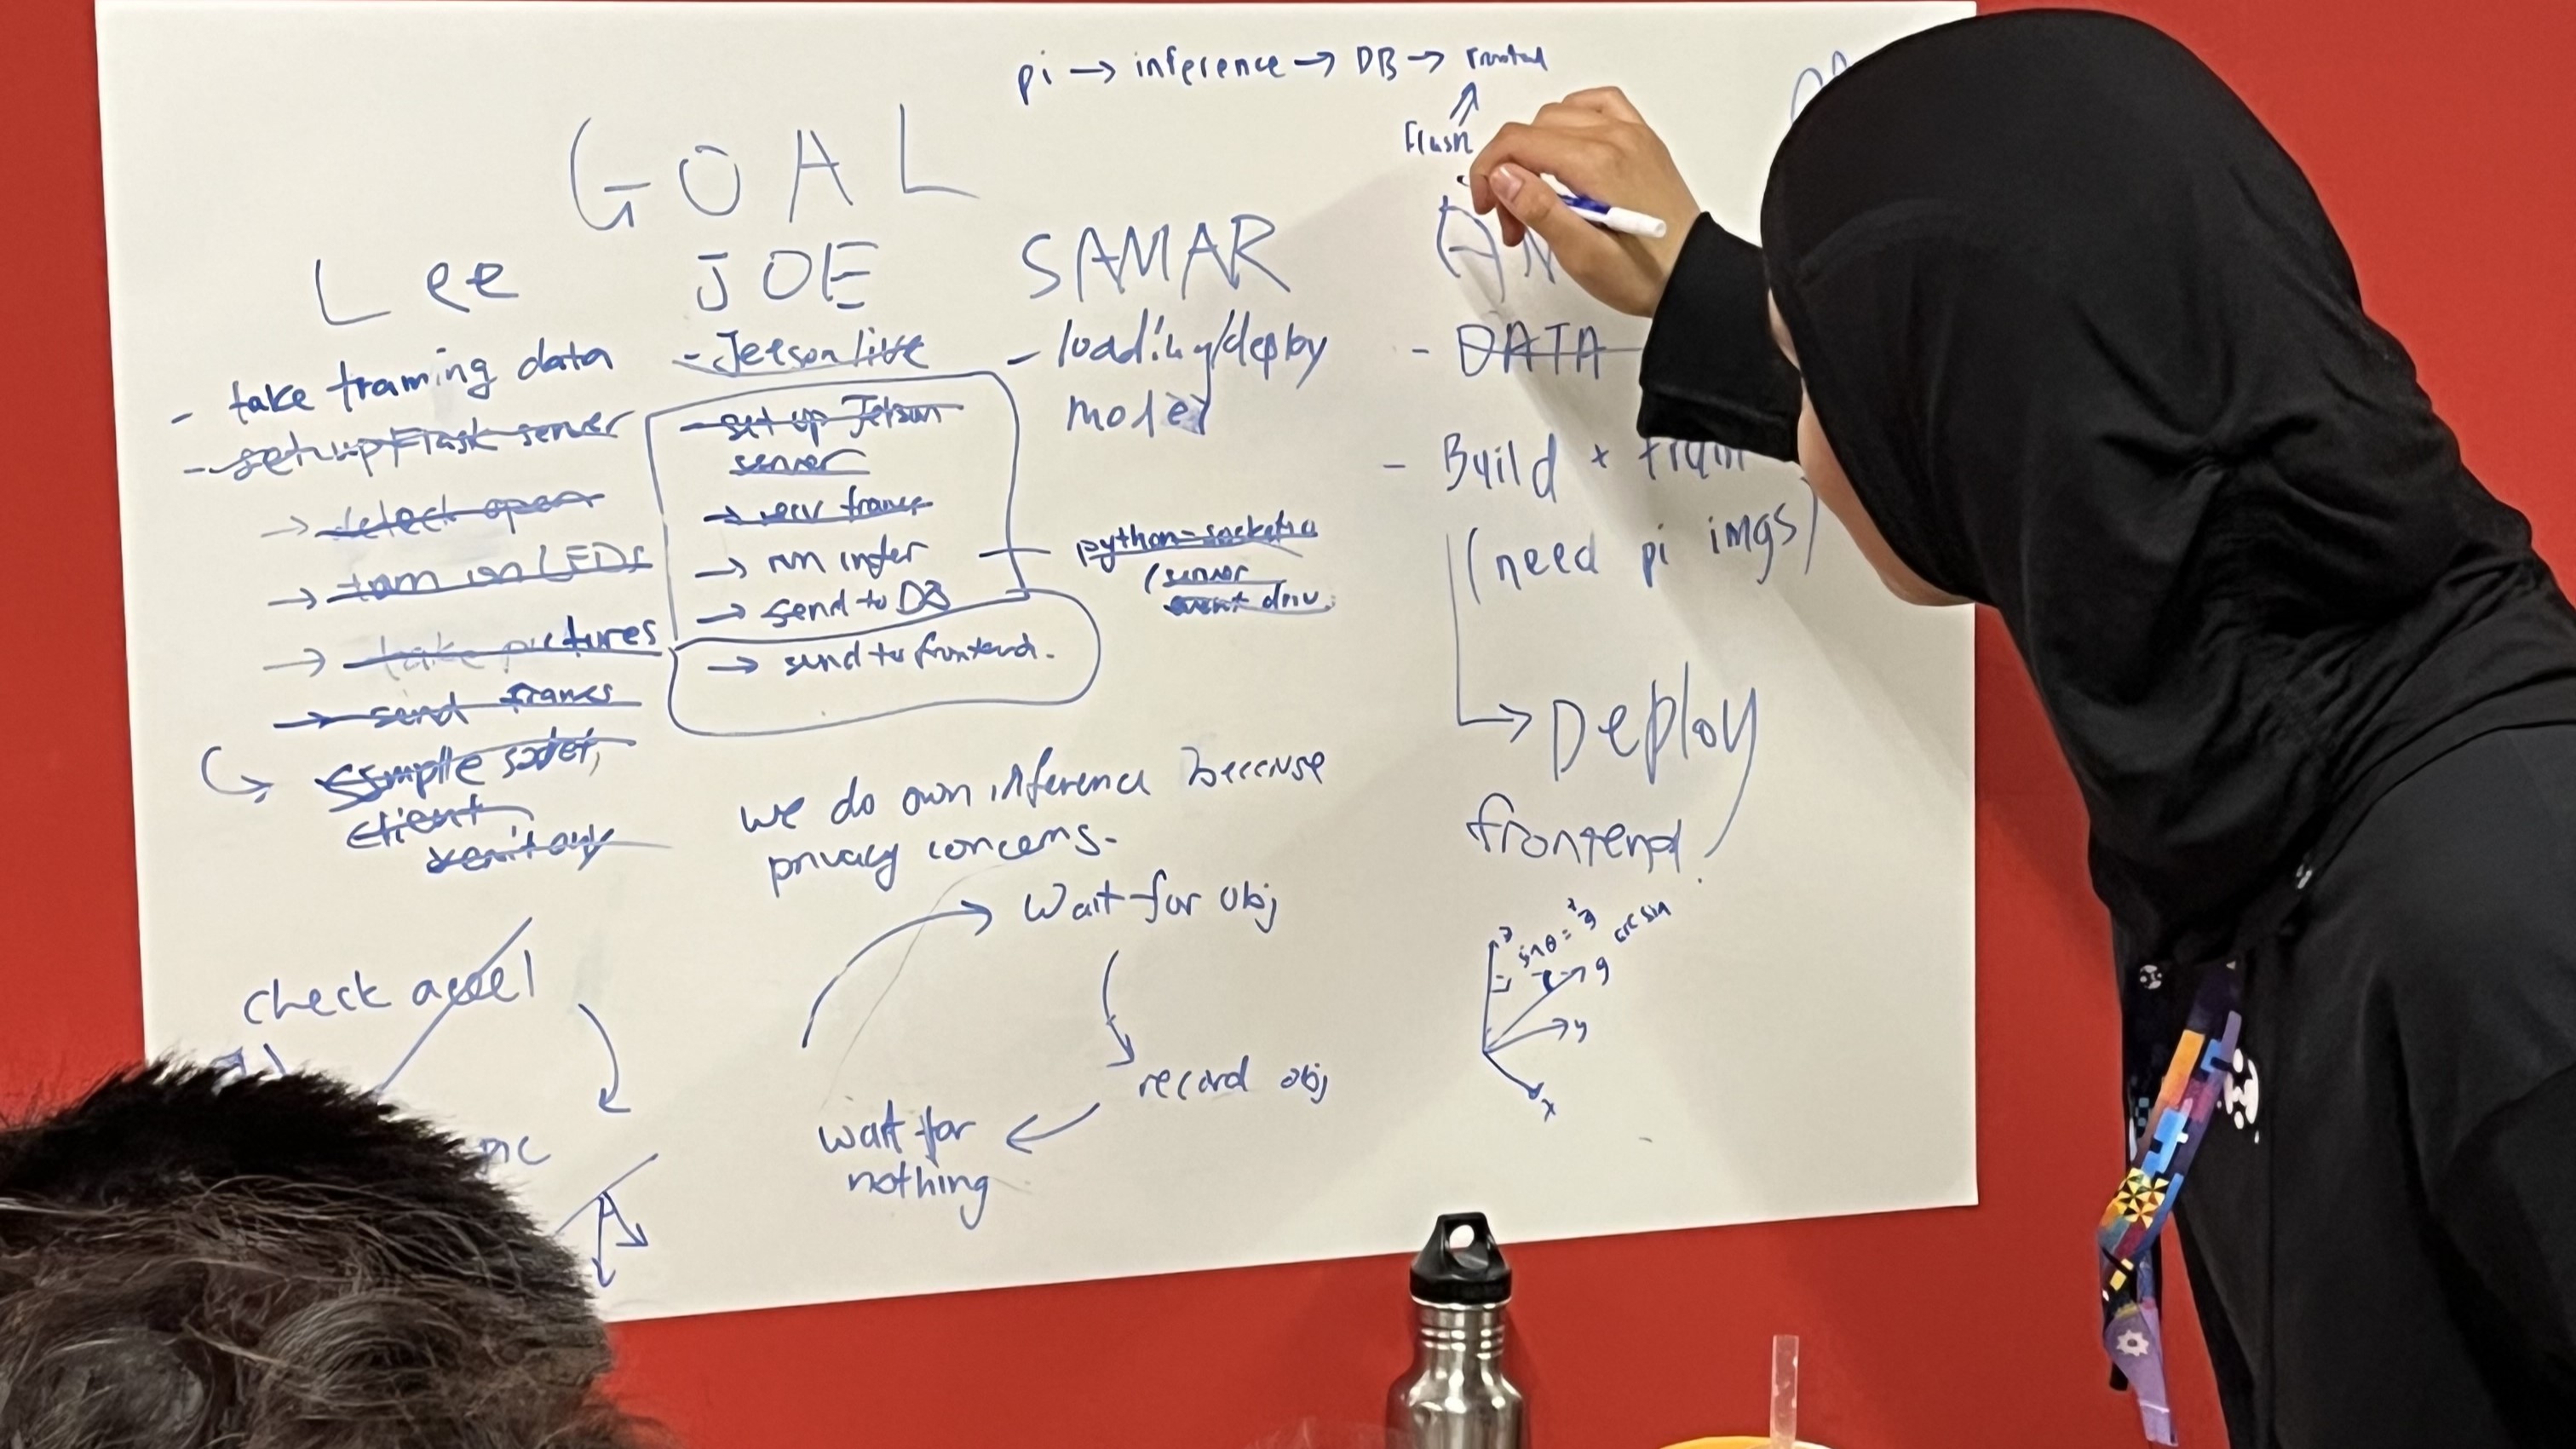 pi → inference → DB →
GOAL
Lee
- take training data
- setup Flask server
→ detect open
→ turn on LEDs
→ take pictures
→ send frames
client
JOE
- Jetson live
- set up Jetson
server
→ recv frames
→ run infer
→ send to DB
→ send to frontend.
SAMAR
- loading/deploy
model
(server
event driv.
- DATA
- Build + train
(need pi imgs)
→ Deploy
frontend
we do own inference because
privacy concerns.
Wait for obj
record obj
wait for
nothing
check accel
sin θ =
arcsin
g
y
x